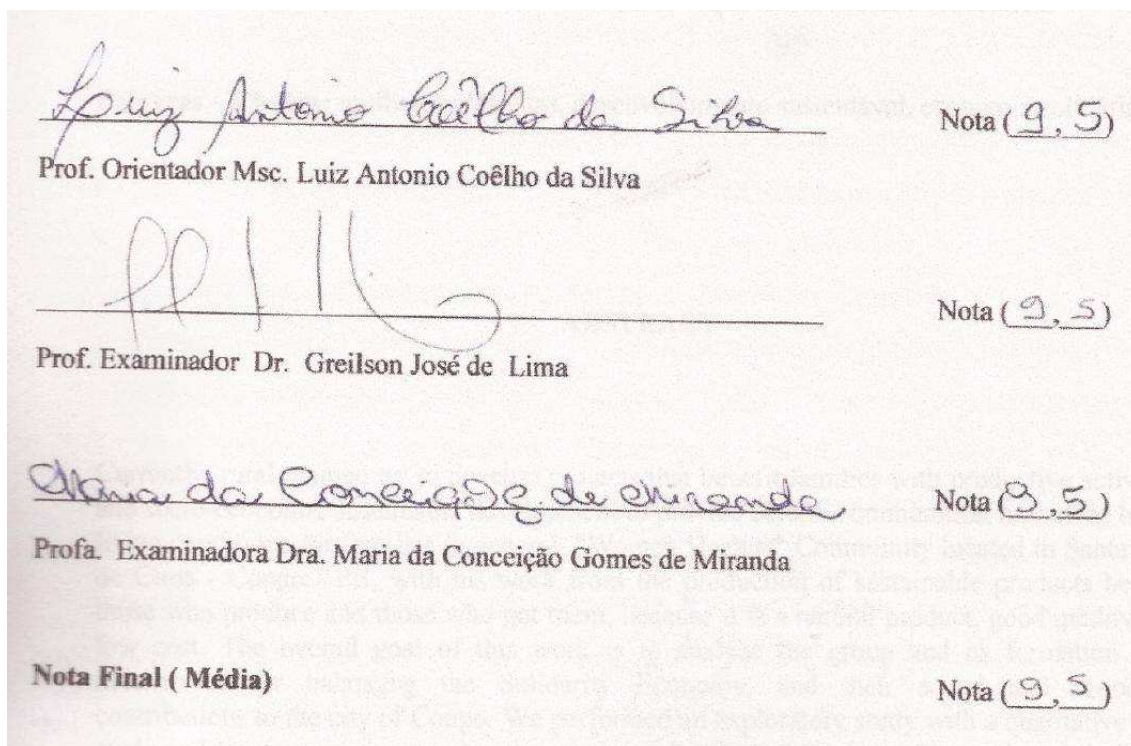 Luiz Antonio Coêlho da Silva Nota ( 9, 5)
Prof. Orientador Msc. Luiz Antonio Coêlho da Silva
Nota ( 9, 5)
Prof. Examinador Dr. Greilson José de Lima
Maria da Conceição G. de Miranda Nota ( 9, 5)
Profa. Examinadora Dra. Maria da Conceição Gomes de Miranda
Nota Final ( Média) Nota ( 9, 5 )